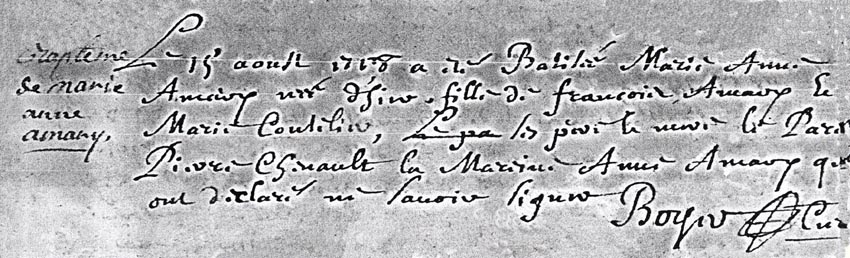 Baptême
de marie
anne
amary,
Le 15 aoust 1718 a été Batisée Marie Anne
Amary née d'hier, fille de francois Amary &
Marie Coutelier, les père & mere le Parein
Pierre Chenault la Mareine Anne Amary qui
ont declaré ne savoir signer
Boyer Curé